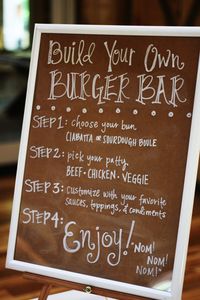 Build Your Own
BURGER BAR
STEP 1: choose your bun
CIABATTA OR SOURDOUGH BOULE
STEP 2: pick your patty
BEEF • CHICKEN • VEGGIE
STEP 3: customize with your favorite
sauces, toppings, & condiments
STEP 4: Enjoy! "NOM!
NOM!
NOM!"